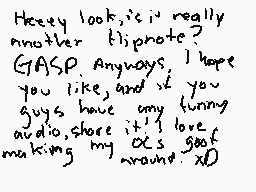 Heeey look, is it really
another flipnote?
GASP. Anyways, I hope
you like, and if you
guys have any funny
audio, share it! I love
making my OCs goof
around xD